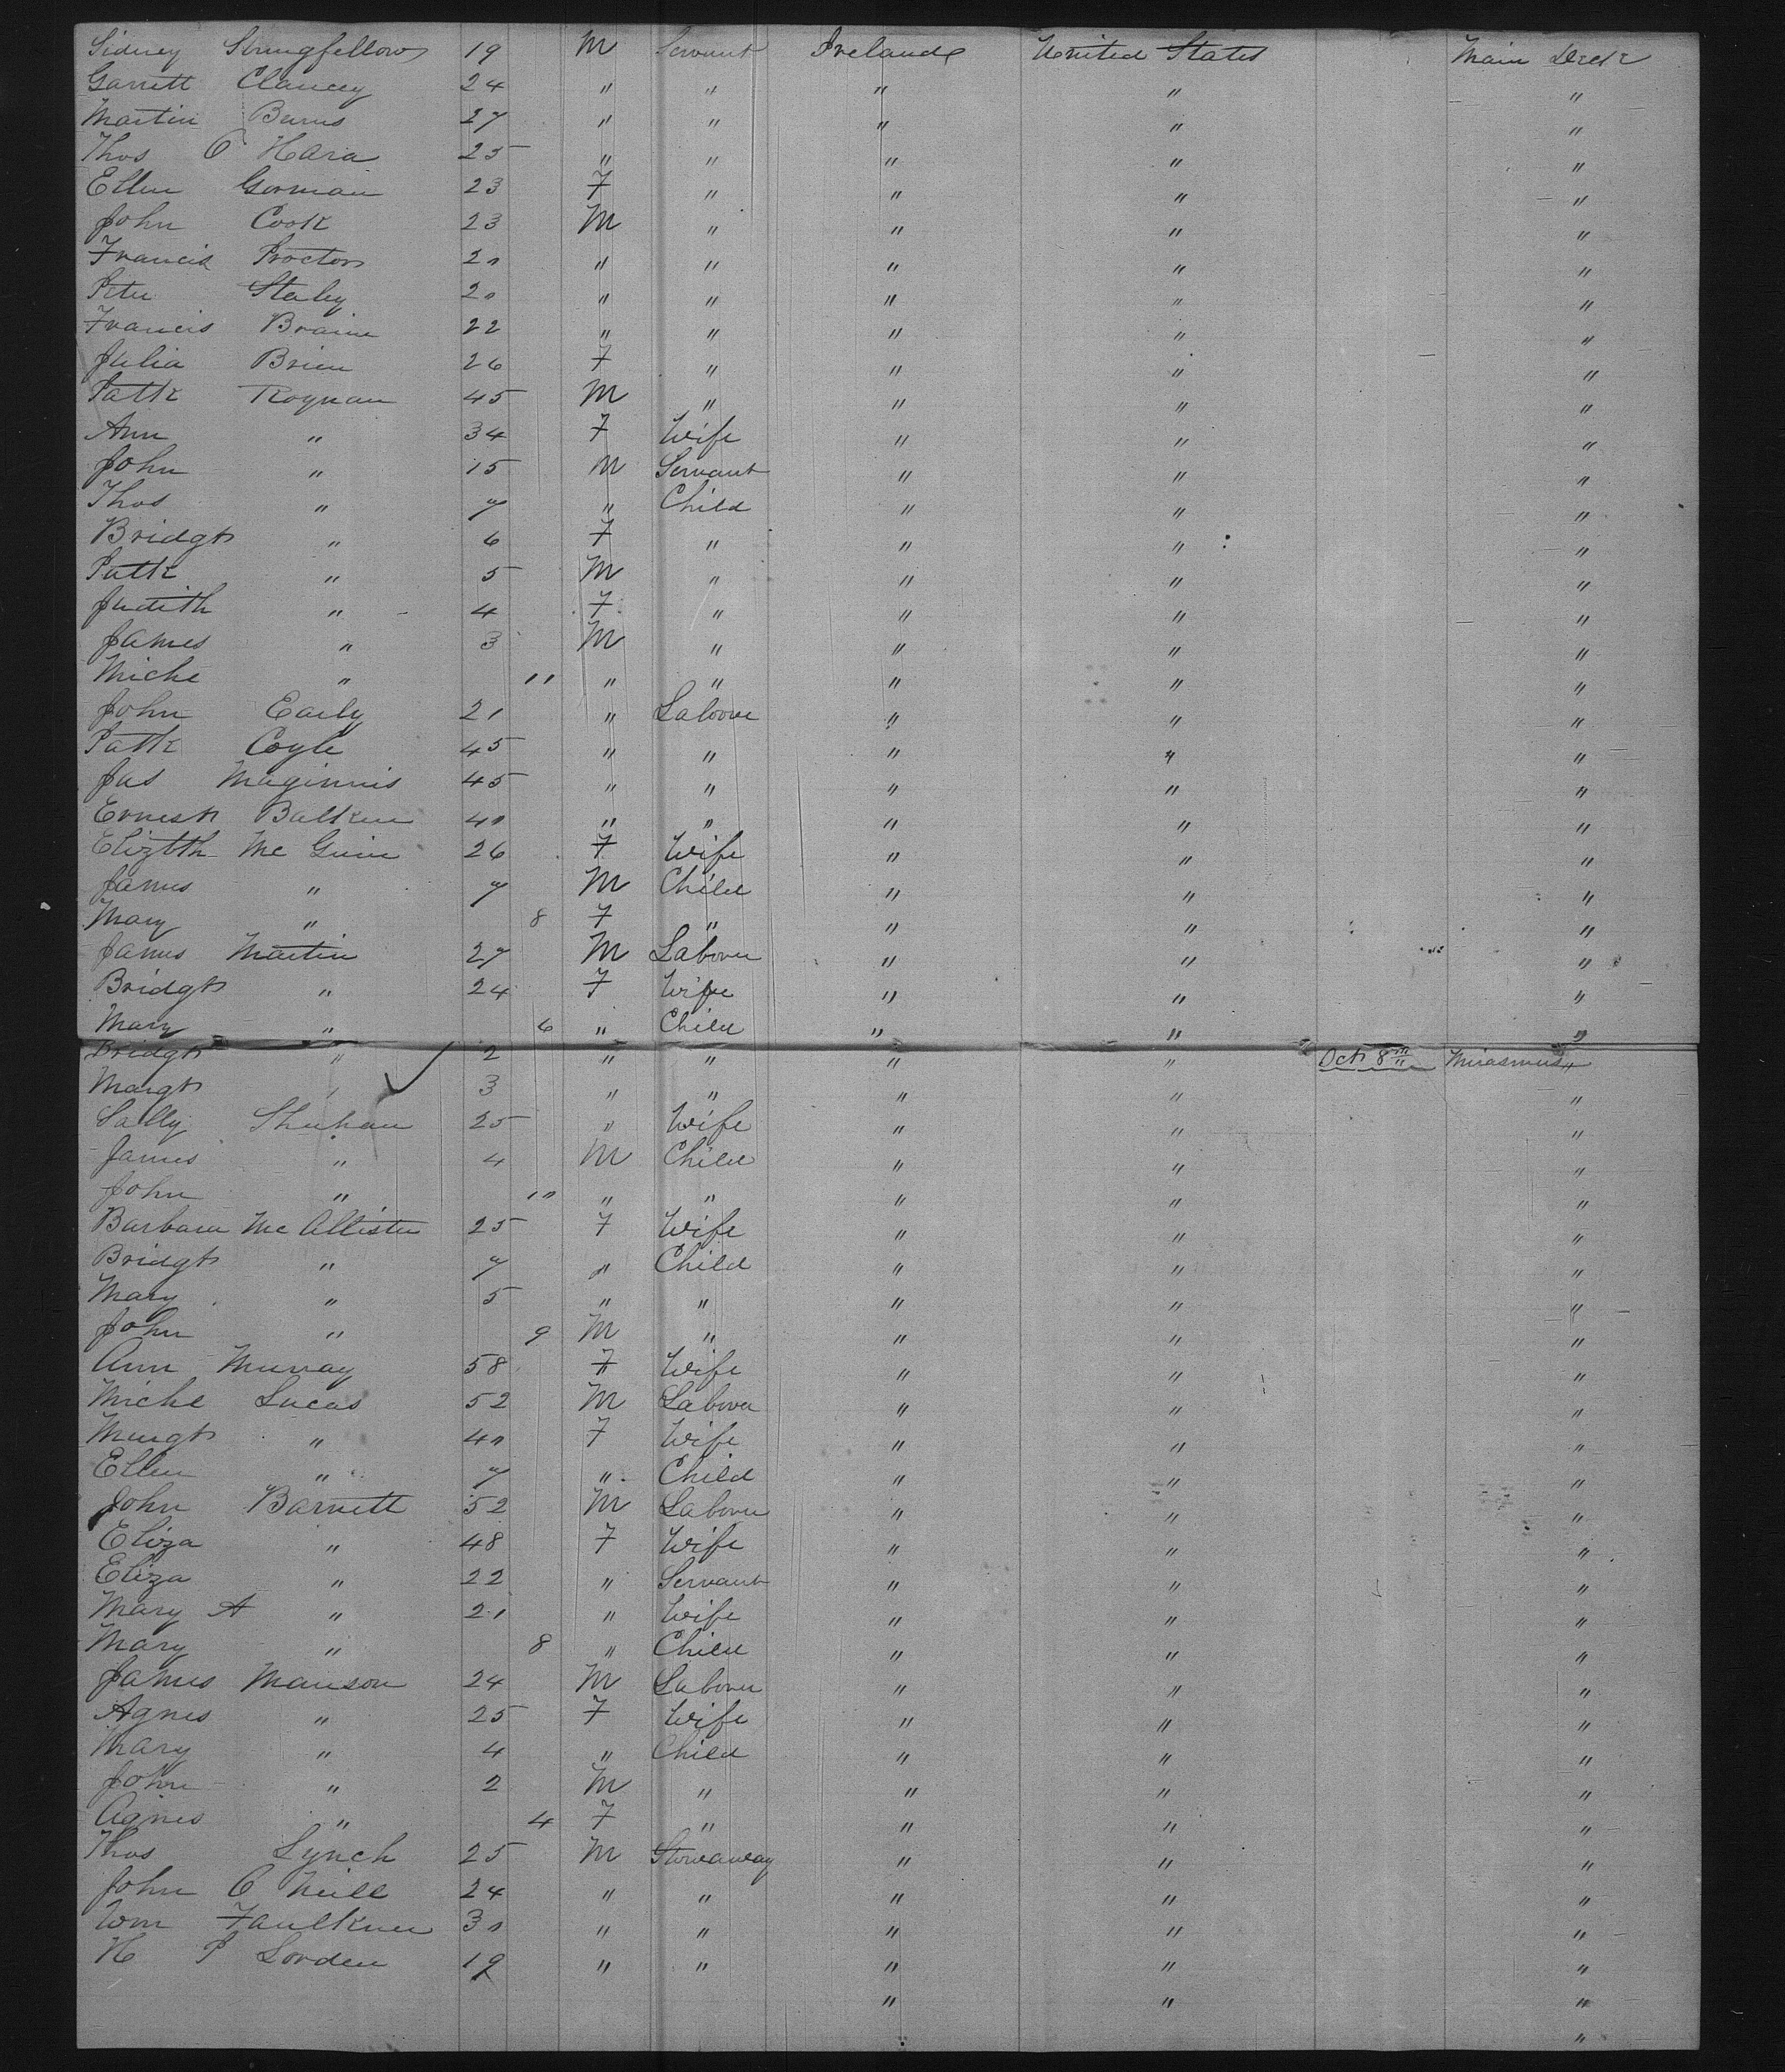 Sidney Stringfellow 19 M Servant Ireland United States Main Deck
Garrett Clancey 24 " " " " "
Martin Burns 27 " " " " "
Thos O Hara 25 " " " " "
Ellen Gorman 23 F " " " "
John Cook 23 M " " " "
Francis Proctor 20 " " " " "
Peter Staley 20 " " " " "
Francis Braine 22 " " " " "
Julia Brien 26 F " " " "
Patk Roynan 45 M " " " "
Ann " 34 F Wife " " "
John " 15 M Servant " " "
Thos " 7 " Child " " "
Bridgt " 6 F " " " "
Patk " 5 M " " " "
Judith " 4 F " " " "
James " 3 M " " " "
Michl " 11 " " " " "
John Early 21 " Labour " " "
Patk Coyle 45 " " " " "
Jas Maginnis 45 " " " " "
Ernest Balken 40 " " " " "
Elizbth Mc Guin 26 F Wife " " "
James " 7 M Child " " "
Mary " 8 F " " " "
James Martin 27 M Labour " " "
Bridgt " 24 F Wife " " "
Mary " 6 " Child " " "
Bridgt " 2 " " " " Oct 8th Mirasmus "
Margt " 3 " " " " "
Sally Shuhan 25 " Wife " " "
James " 4 M Child " " "
John " 10 " " " " "
Barbara Mc Allister 25 F Wife " " "
Bridgt " 7 " Child " " "
Mary " 5 " " " " "
John " 9 M " " " "
Ann Murray 58 F Wife " " "
Michl Lucas 52 M Labour " " "
Margt " 40 F Wife " " "
Ellen " 7 " Child " " "
John Barnett 52 M Labour " " "
Eliza " 48 F Wife " " "
Eliza " 22 " Servant " " "
Mary A " 21 " Wife " " "
Mary " 8 " Child " " "
James Manson 24 M Labour " " "
Agnes " 25 F Wife " " "
Mary " 4 " Child " " "
John " 2 M " " " "
Agnes " 4 F " " " "
Thos Lynch 25 M Stowaway " " "
John O Neill 24 " " " " "
Wm Faulkner 30 " " " " "
H P Lorden 19 " " " " "
" " "
"